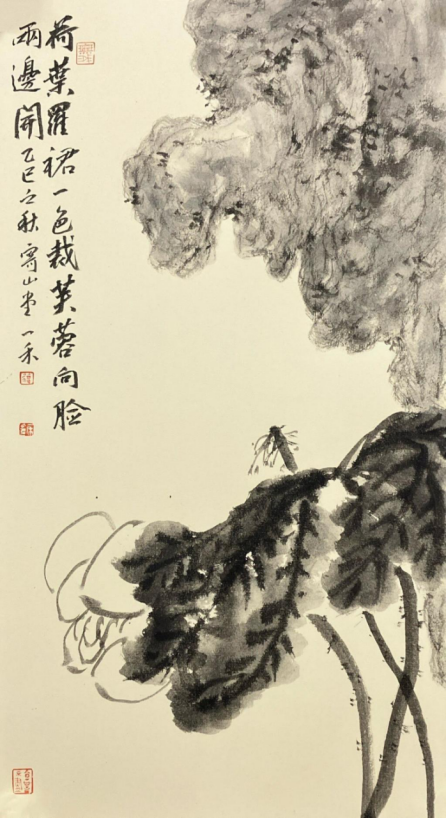 荷葉羅裙一色裁芙蓉向臉
兩邊開乙巳之秋寄山堂一禾